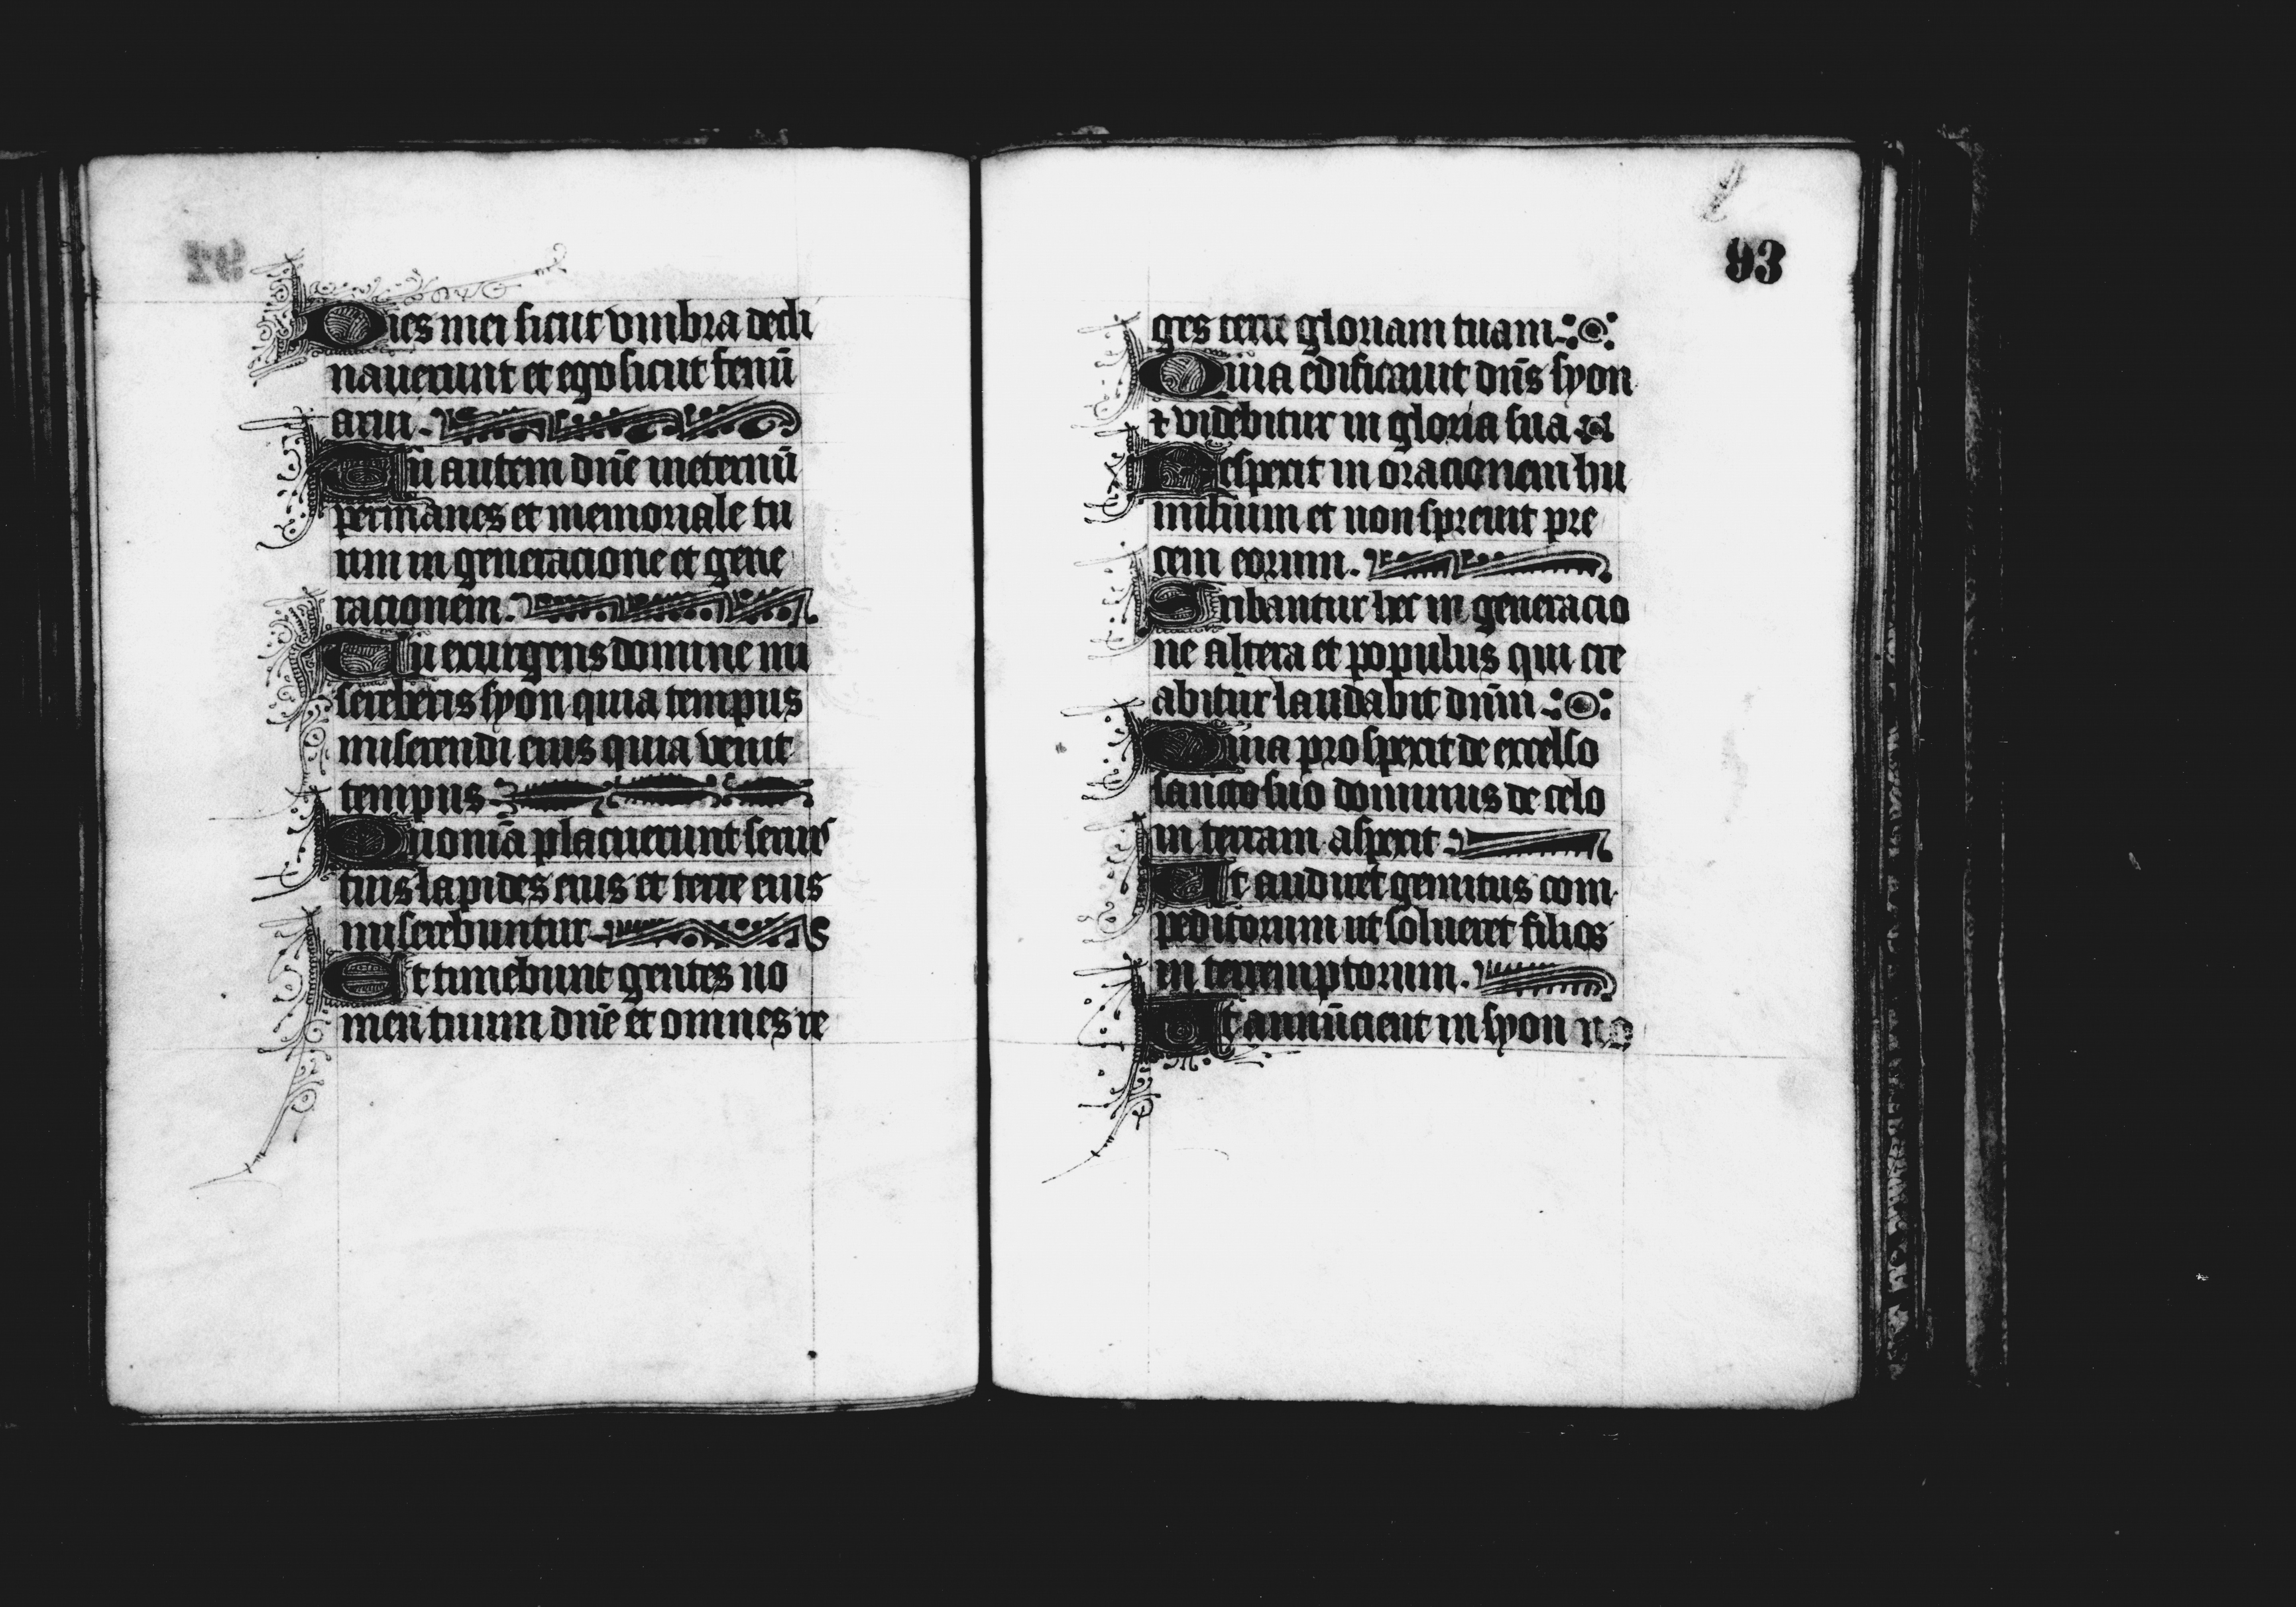 Dies mei sicut vmbra decli
nauerunt et ego sicut fenū
arui.
Tu autem dn̄e ineternū
permanes et memoriale tu
um in generacione et gene
racionem.
Tu exurgens domine mi
sereberis syon quia tempus
miserendi eius quia venit
tempus
Quoniā placuerunt seruis
tuis lapides eius et terre eius
miserebuntur
Et timebunt gentes no
men tuum dn̄e et omnes re
93
ges terre gloriam tuam
Quia edificauit dn̄s syon
⁊ videbitur in gloria sua
Respexit in oracionem hu
milium et non spreuit pre
cem eorum.
Scribantur hec in generacio
ne altera et populus qui cre
abitur laudabit dn̄m
Quia prospexit de excelso
sancto suo dominus de celo
in terram aspexit
Ut audiret gemitus com
peditorum ut solueret filios
in teremptorum.
Ut annūcient in syon no